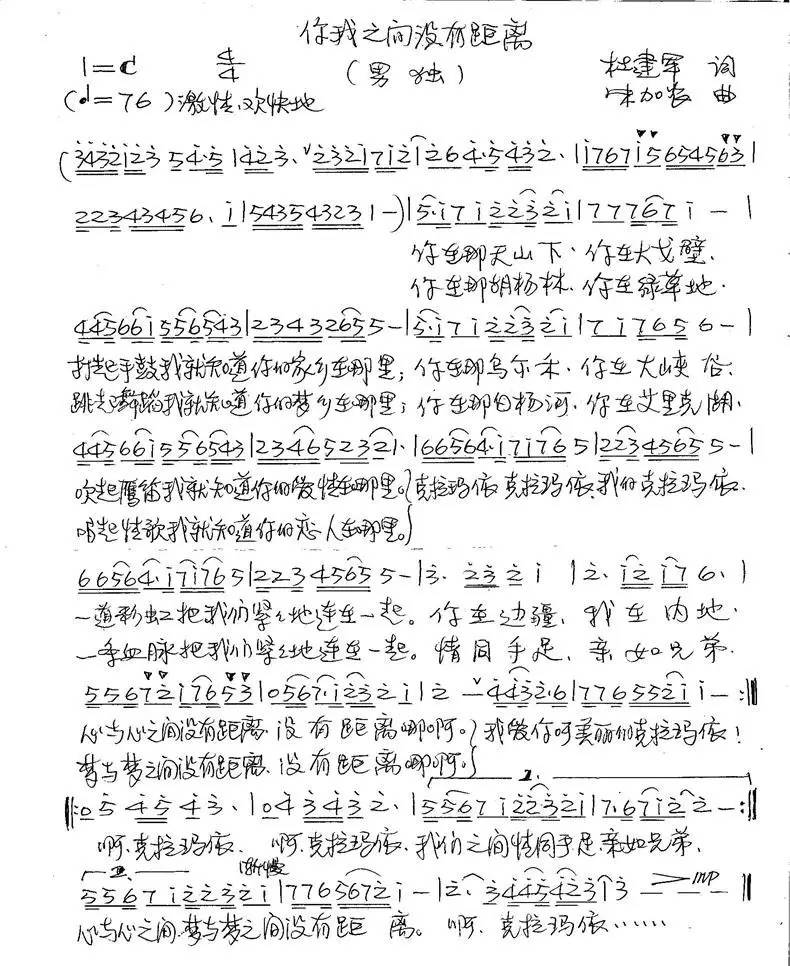 你我之间没有距离
(男 独)
1=C 4/4
杜建军 词
(♩=76)激情、欢快地
加农 曲
(3432123 54·5|423、2321712|1264·5432、|1767156545653|
22343456、1|543543231-)|5·1712232 1|777671-|
你在那天山下、你在大戈壁、
你在那胡杨林、你在绿草地、
445661556543|23432655-|5·171223 21|7 17656-|
打起手鼓我就知道你的家乡在哪里;你在那乌尔禾、你在大峡谷、
跳起舞蹈我就知道你的梦乡在哪里;你在那白杨河、你在艾里克湖、
445661556543|2346523 21·|66564·171765|2234565 5-|
吹起鹰笛我就知道你的爱情在哪里。克拉玛依克拉玛依、我的克拉玛依、
唱起情歌我就知道你的恋人在哪里。
66564·171765|2234565 5-|3、2321|2、12176、|
一道彩虹把我们紧紧地连在一起。你在边疆、我在内地、
一季血脉把我们紧紧地连在一起。情同手足、亲如兄弟、
55672176 53|0567·12321|2-4432·6|776552 11-:‖
心与心之间没有距离、没有距离哪啊。我爱你呵美丽的克拉玛依!
梦与梦之间没有距离、没有距离哪啊。
1.
‖:05 45 43、|04 3432、|5567122321|7·67122-:‖
啊、克拉玛依、啊、克拉玛依、我们之间情同手足、亲如兄弟、
2. 渐慢
5567122321|77656721-|2、34454231|3 - - - mp‖
心与心之间、梦与梦之间没有距离。啊、克拉玛依……